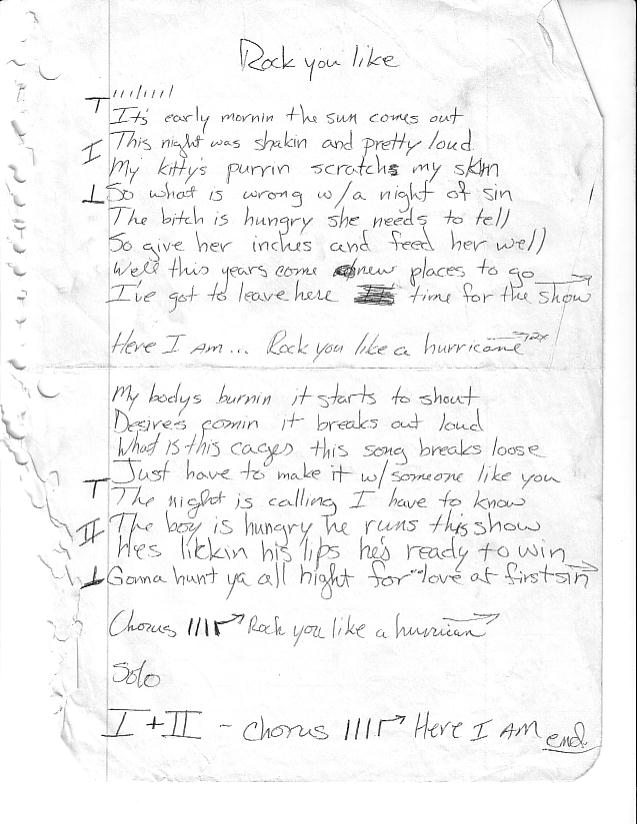 Rock you like
T ''''''''
It's early mornin the sun comes out
I This night was shakin and pretty loud
My kitty's purrin scratchs my skin
⊥ So what is wrong w/a night of sin
The bitch is hungry she needs to tell
So give her inches and feed her well
Well this years come new places to go
I've got to leave here time for the show
Here I Am... Rock you like a hurricane 2x
My bodys burnin it starts to shout
Desires comin it breaks out loud
What Is this cages this song breaks loose
Just have to make it w/someone like you
T The night is calling I have to know
II The boy is hungry he runs this show
Hes lickin his lips he's ready to win
⊥ Gonna hunt ya all night for love at first sin
Chorus |||| Rock you like a hurrican
Solo
I + II - Chorus |||| Here I AM end